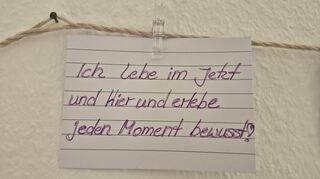 Ich lebe im Jetzt
und Hier und erlebe
jeden Moment bewusst!♡